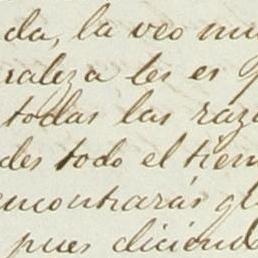 da, la veo mu
raleza les es q
todas las raz
des todo el tiem
encontrarás qu
pues diciend